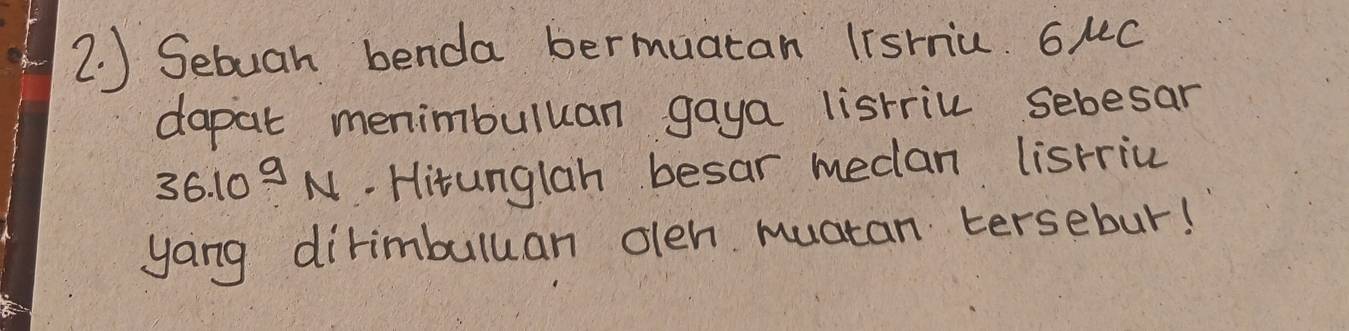 2.) Sebuah benda bermuatan listrik. 6 μC
dapat menimbulkan gaya listrik sebesar
36.10⁹ N. Hitunglah besar medan listrik
yang ditimbulkan oleh muatan tersebut!